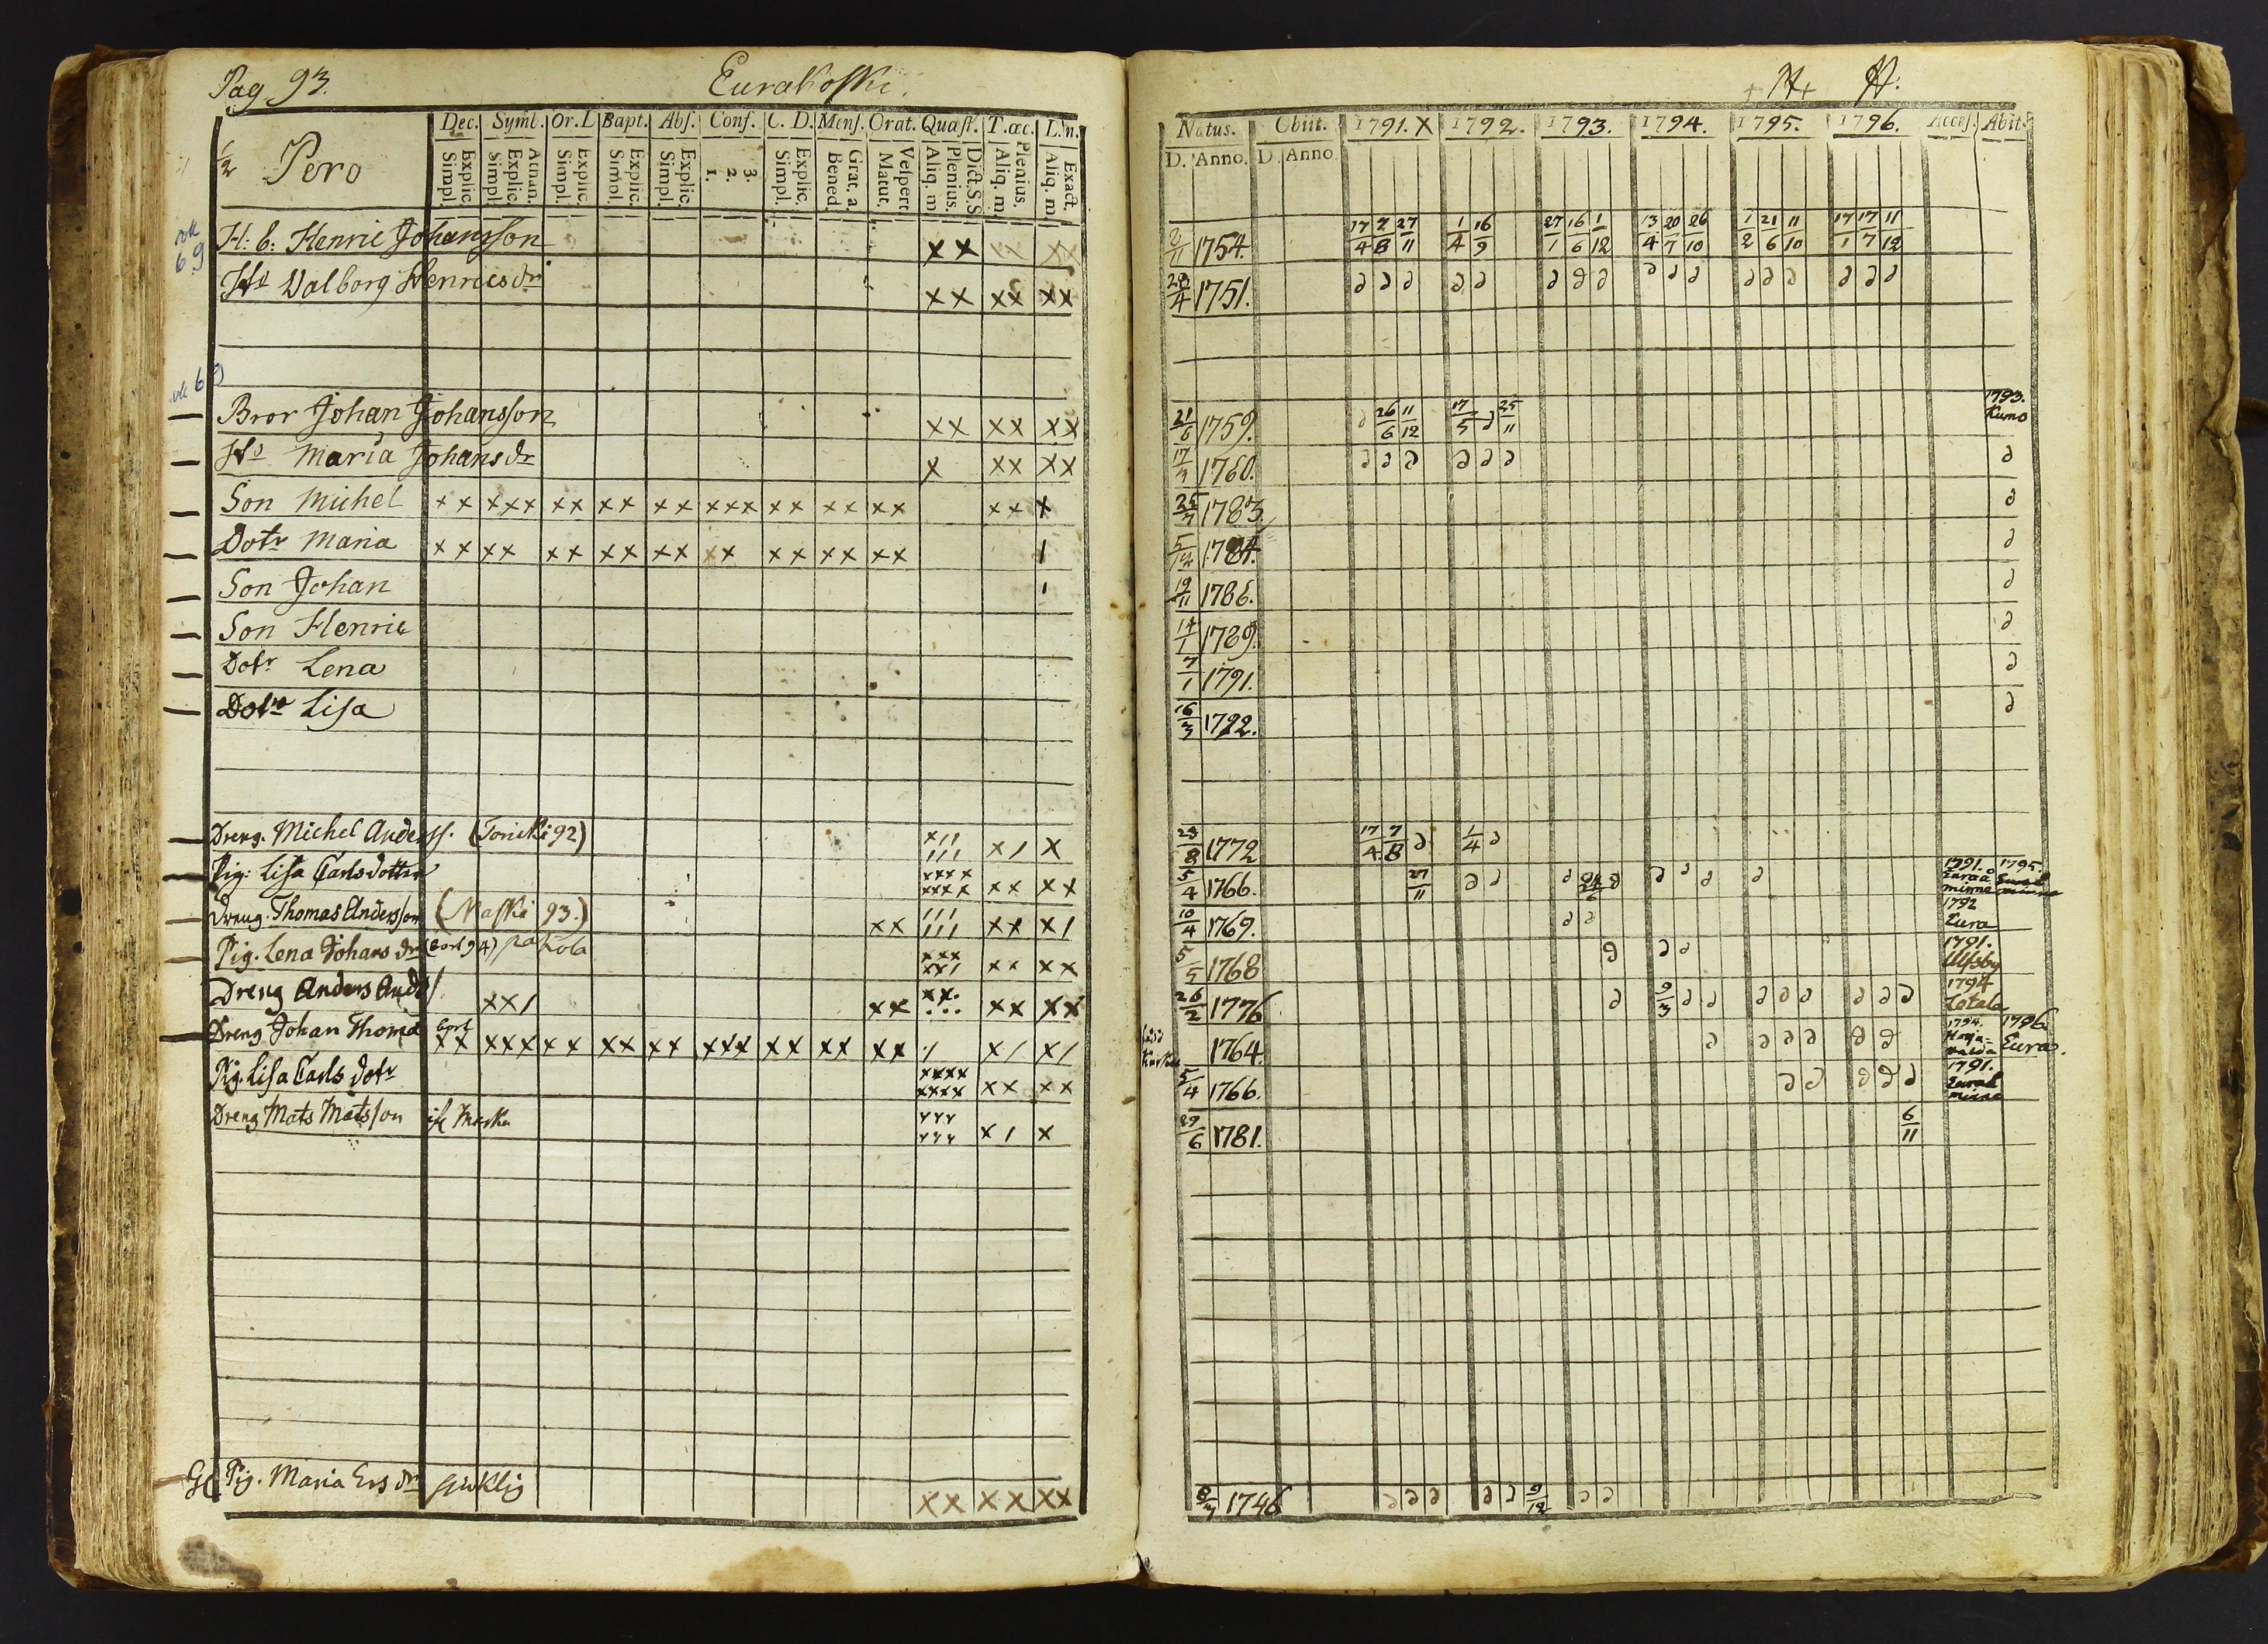 Pag 93. Eurakoski.
Dec. Symb. Or. D Bapt. Abs. Conf. C. D. Mens. Orat. Quæst. T. œc. L. in.
½ Pero
Explic. Simpl. Athan. Explic. Simpl. Explic. Simpl. Explic. Simpl. Explic. Simpl. 3. 2. 1. Explic. Simpl. Grat. a. Bened. Vespert. Matut. Dict. S.S. Plenius. Aliq. m Plenius. Aliq. m. Exact. Aliq. m
69
H. b: Henric Johansson xx xx xx
Hu Valborg Henricsdr xx xx xx
Bror Johan Johansson xx xx xx
Hu Maria Johansdr x xx xx
Son Michel xx xxx xx xx xx xxx xx xx xx xx x
Dotr Maria xx xx xx xx xx xx xx xx xx 1
Son Johan
Son Henric
Dotr Lena
Dotr Lisa
Dreng. Michel Anderss. (Tonicki 92) x/ x
Pig: Lisa Carlsdotter xxxx xxxx xx xx
Dreng. Thomas Andersson (Naski 93.) xx xx x/
Pig. Lena Johans dr xx xx
Dreng Anders Anders xx/ xx xx xx
Dreng Johan Thoma xx xxx xx xx xx xxx xx xx xx x/ x/
Pig. Lisa Carls dotr xxxx xxxx xx xx
Dreng Mats Matsson x/ x
Pig. Maria Ers dr siuklig xx xx xx
Natus. Obiit. 1791. X 1792. 1793. 1794. 1795. 1796. Acces. Abit.
D. Anno. D. Anno
2/11 1754. 17/4 7/8 27/11 1/4 16/9 27/1 16/6 1/12 13/4 20/7 26/10 1/2 21/6 11/10 17/1 17/7 11/12
28/4 1751.
21/6 1759. 26/6 11/12 17/5 25/11 1793. Kumo
17/3 1760.
25/7 1783.
5/12 1784.
19/11 1786.
14/1 1789.
7/1 1791.
16/3 1792.
23/8 1772 17/4 7/8 1/4
5/4 1766. 27/11 1791. 1795.
10/4 1769. 1792 Eura
5/5 1768 1791. Ulfsby
26/2 1776 9/3 1794 Letala
1764. 1794. Harjavalda 1796 Eura.
5/4 1766. 1791.
29/6 1781. 6/11
8/7 1746 9/12